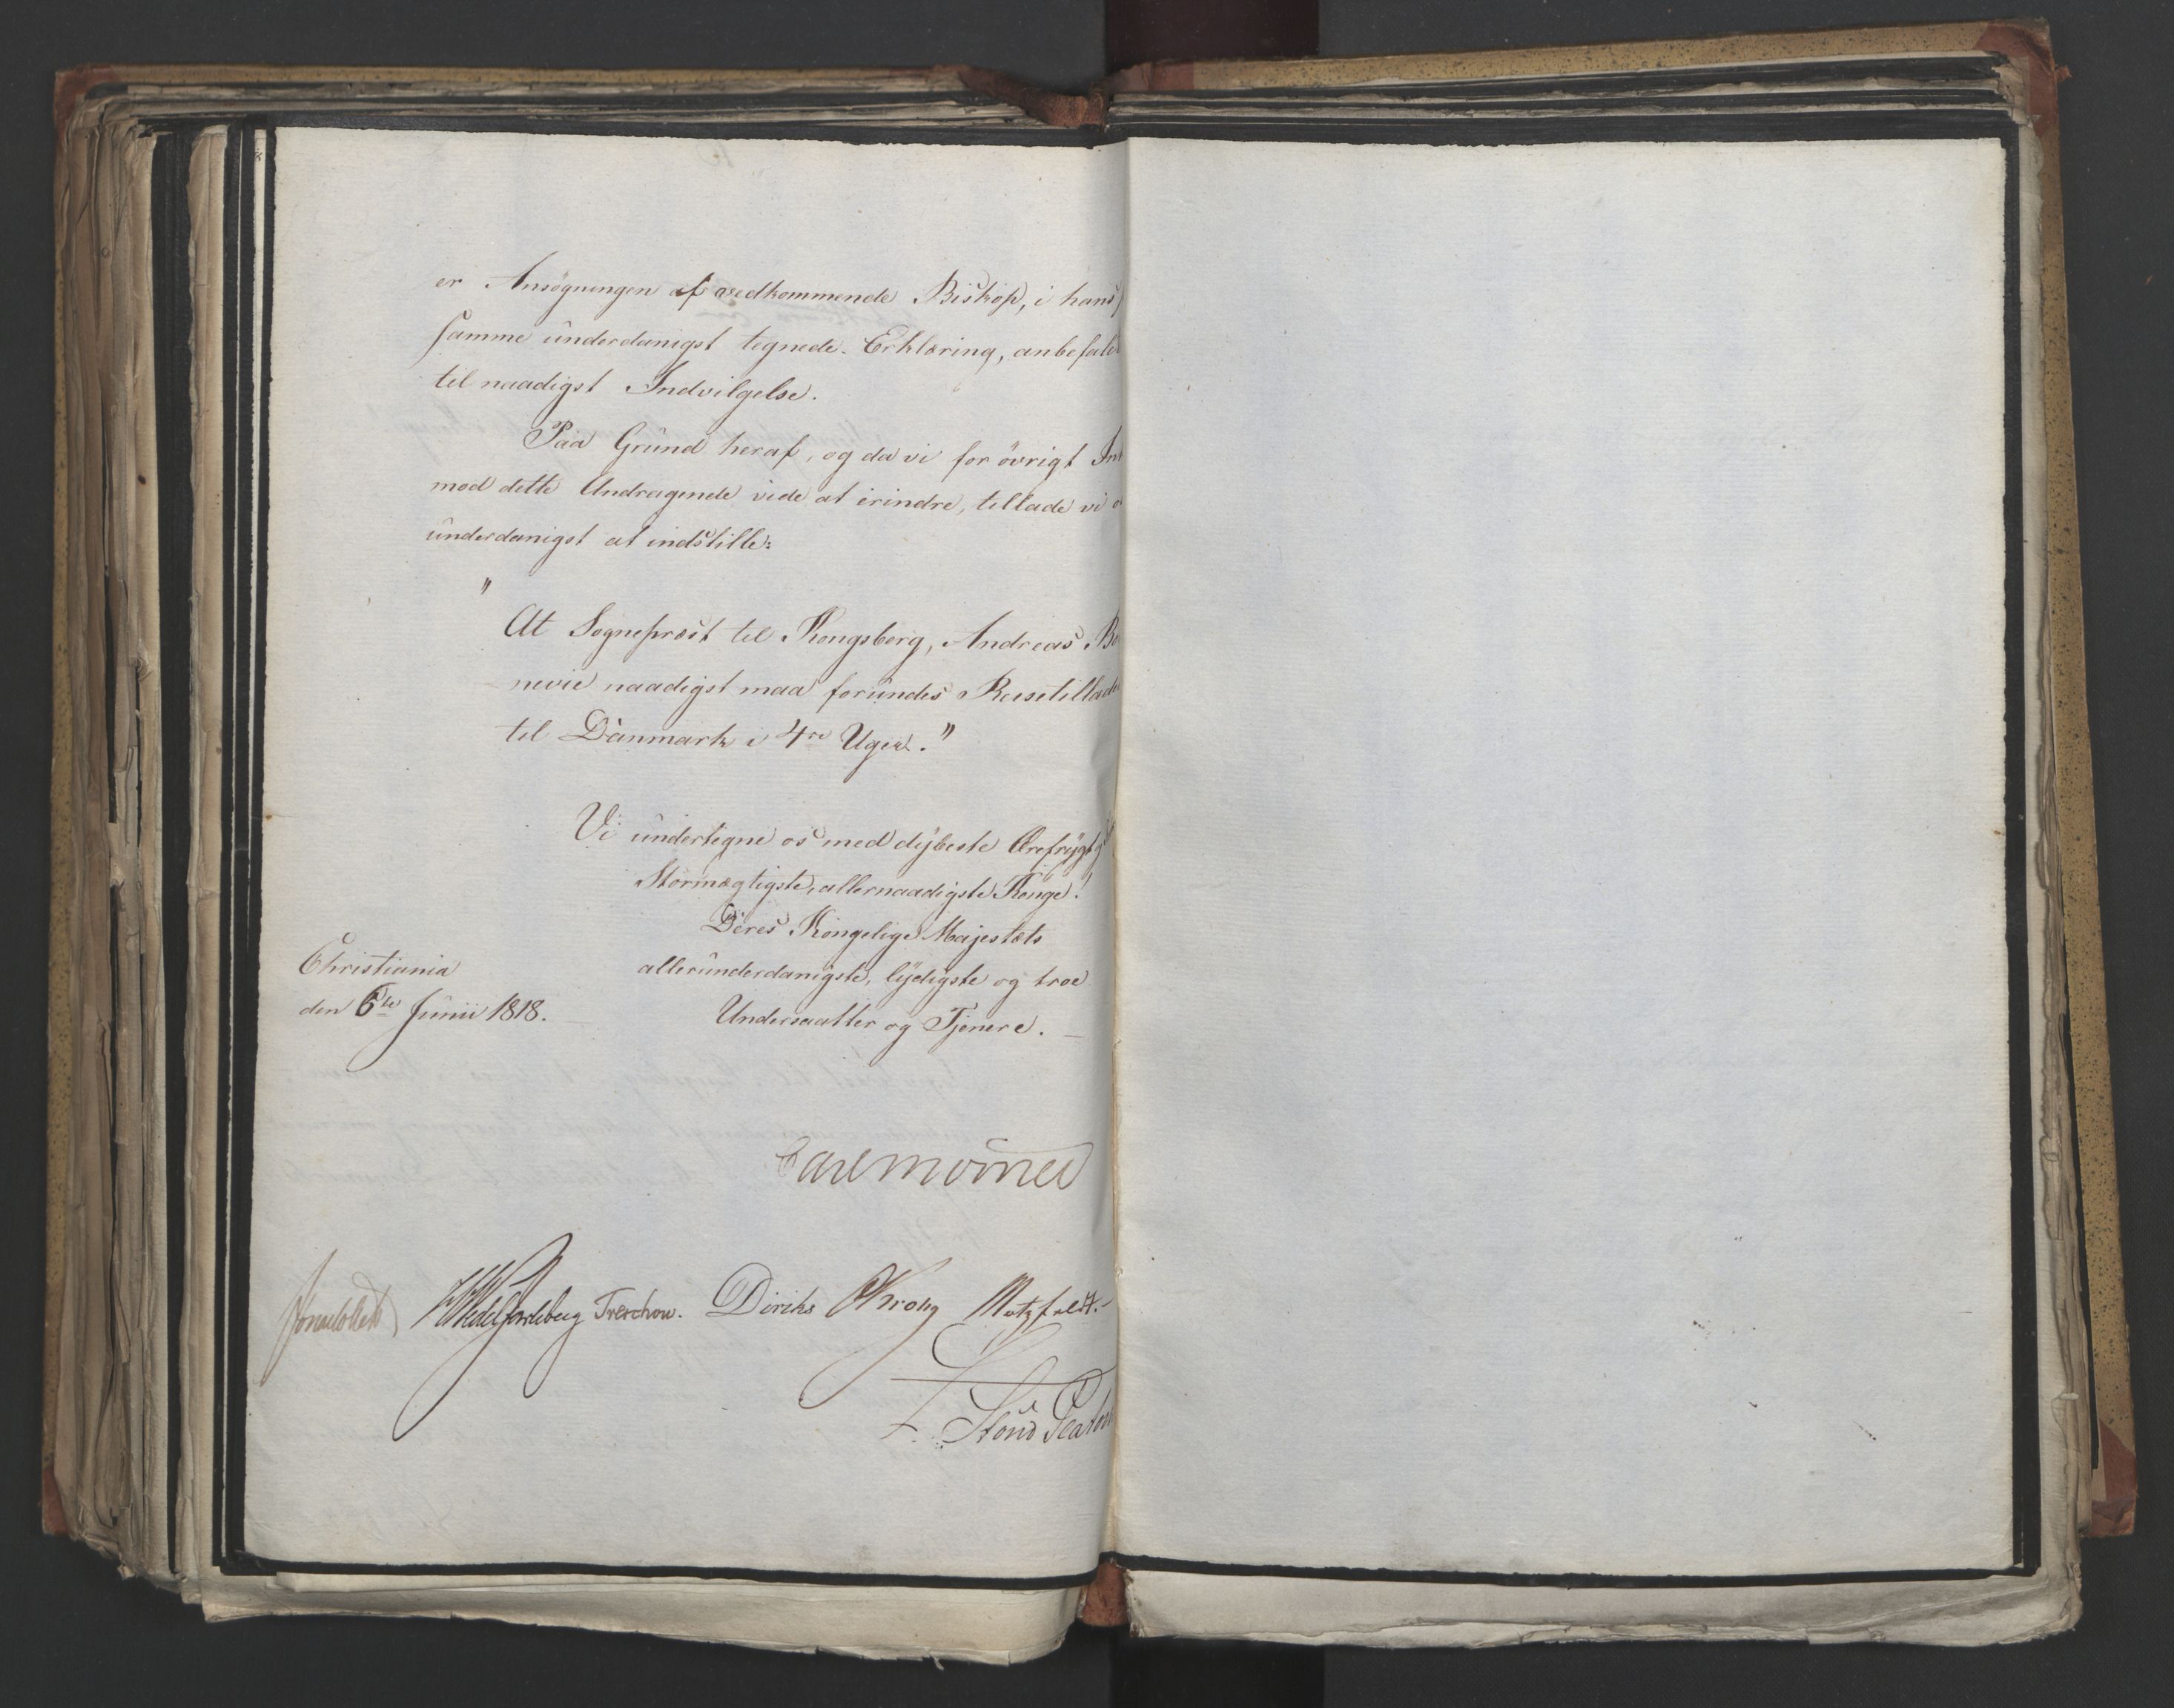 er Ansögningen af vedkommende Biskop, i hans
samme underdanigst tegnede Erklæring, anbefalet
til naadigst Indvilgelse.
Paa Grund heraf, og da vi for övrigt
mod dette Andragende vide at erindre, tillade vi
underdanigst at indstille:
"
At Sognepræst til Kongsberg, Andreas Bo
nevie naadigst maa forundes Reisetillade
til Danmark i 4re Uger."
Vi undertegne os med dybeste Ærefrygt
Stormægtigste, allernaadigste Konge!
Deres Kongelige Majestæts
allerunderdanigste, lydigste og troe
Undersaatter og Tjenere.
Christiania
den 6te Junii 1818.
Carl Mörner
Jonas Collett HWedel Jarlsberg Treschow. Diriks Krohg Motzfeldt.